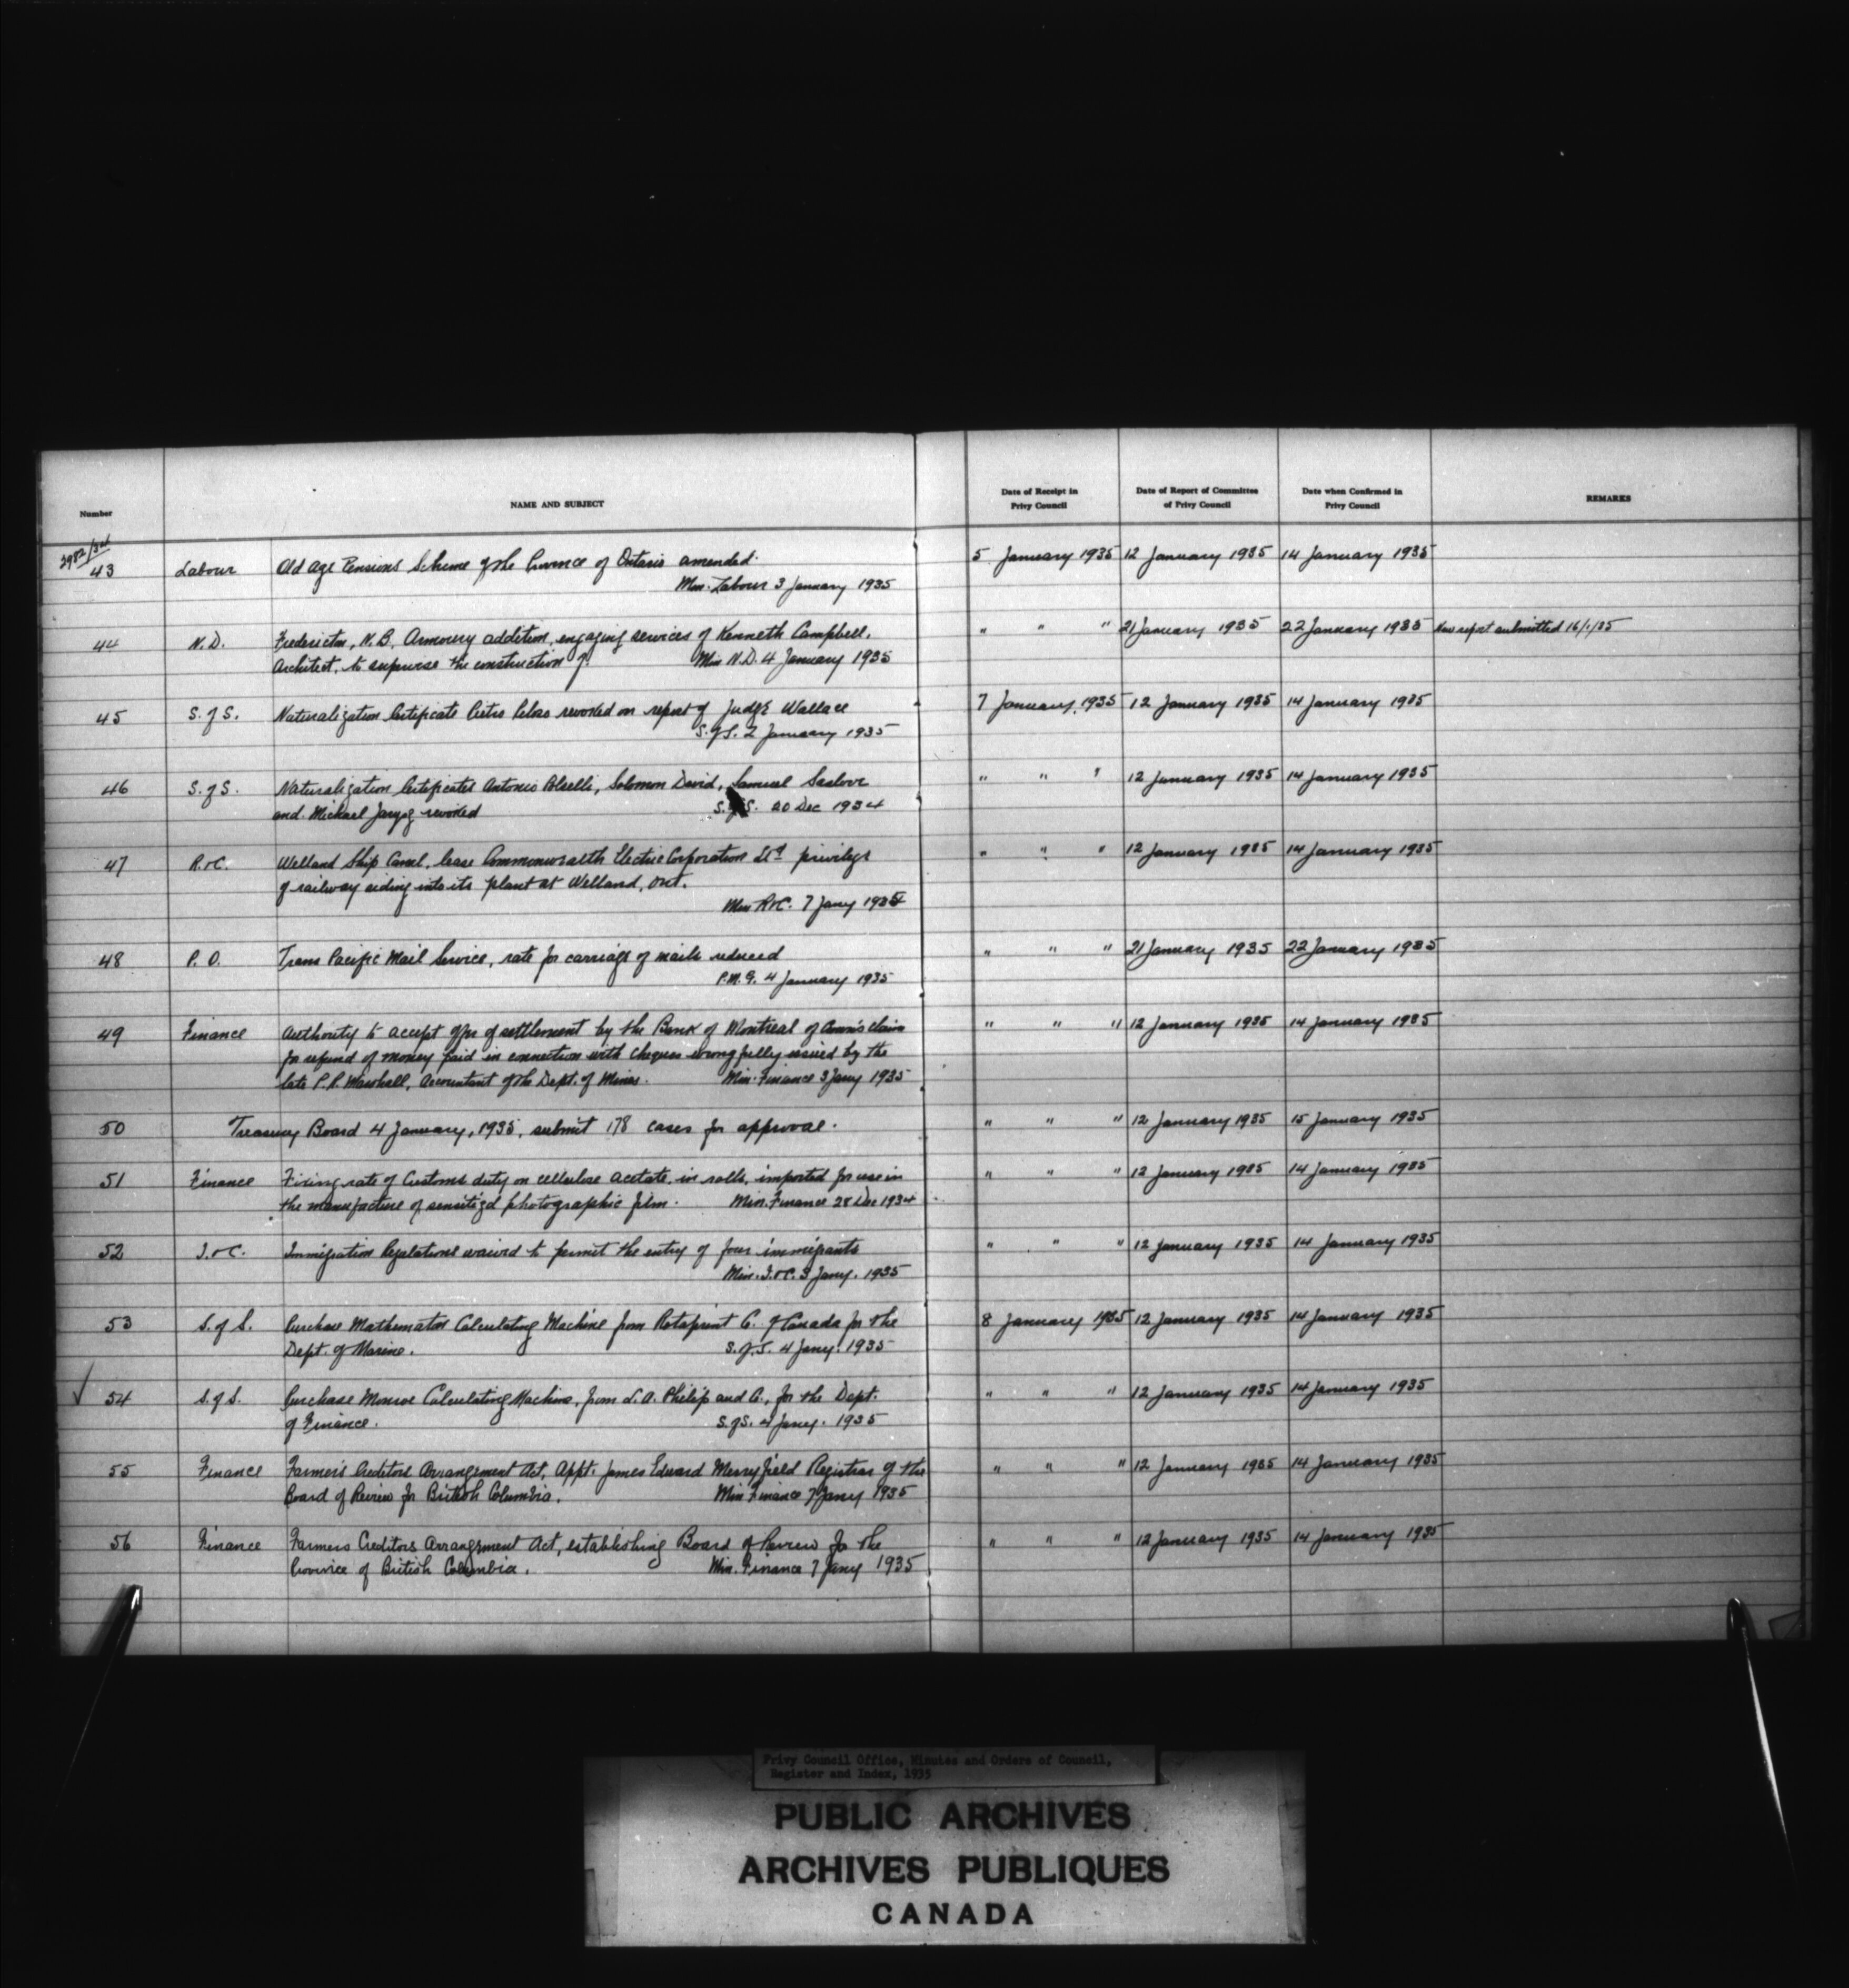 Number
NAME AND SUBJECT
Date of Receipt in
Privy Council
Date of Report of Committee
of Privy Council
Date when Confirmed in
Privy Council
REMARKS
2982/34
43 Labour Old Age Pensions Scheme of the Province of Ontario amended. 5 January 1935 12 January 1935 14 January 1935
Min. Labour 3 January 1935
44 N.D. Fredericton, N.B. Armoury addition, engaging services of Kenneth Campbell, " " " 21 January 1935 22 January 1935 New report submitted 16/1/35
Architect, to supervise the construction of. Min N.D. 4 January 1935
45 S. of S. Naturalization Certificate revoked on report of Judge Wallace 7 January 1935 12 January 1935 14 January 1935
S. of S. 2 January 1935
46 S. of S. Naturalization Certificates Antonio Solomon David, Samuel Saslove " " " 12 January 1935 14 January 1935
and Michael revoked S. of S. 20 Dec 1934
47 R. & C. Welland Ship Canal, lease Commonwealth Electric Corporation Ltd privilege " " " 12 January 1935 14 January 1935
of railway siding into its plant at Welland, Ont.
Min R & C. 7 Jany 1935
48 P. O. Trans Pacific Mail Service, rate for carriage of mails reduced " " " 21 January 1935 22 January 1935
P.M.G. 4 January 1935
49 Finance Authority to accept offer of settlement by the Bank of Montreal of claim " " " 12 January 1935 14 January 1935
for refund of money paid in connection with cheques wrongfully issued by the
late Marshall, Accountant of the Dept. of Mines. Min. Finance 3 Jany 1935
50 Treasury Board 4 January, 1935, submit 178 cases for approval. " " " 12 January 1935 15 January 1935
51 Finance Fixing rate of Customs duty on cellulose acetate in rolls, imported for use in " " " 12 January 1935 14 January 1935
the manufacture of sensitized photographic film. Min. Finance 28 Dec 1934
52 I. & C. Immigration Regulations waived to permit the entry of four immigrants " " " 12 January 1935 14 January 1935
Min. I. & C. 3 Jany. 1935
53 S. of S. Purchase Mathematon Calculating Machine from Rotaprint C. of Canada for the 8 January 1935 12 January 1935 14 January 1935
Dept. of Marine. S. of S. 4 Jany. 1935
54 S. of S. Purchase Monroe Calculating Machine, from L.A. Philip and C., for the Dept. " " " 12 January 1935 14 January 1935
of Finance. S. of S. 4 Jany. 1935
55 Finance Farmers Creditors Arrangement Act, Appt. James Edward Merryfield Registrar of the " " " 12 January 1935 14 January 1935
Board of Review for British Columbia. Min Finance 7 Jany 1935
56 Finance Farmers Creditors Arrangement Act, establishing Board of Review for the " " " 12 January 1935 14 January 1935
Province of British Columbia. Min. Finance 7 Jany 1935
Privy Council Office, Minutes and Orders of Council,
Register and Index, 1935
PUBLIC ARCHIVES
ARCHIVES PUBLIQUES
CANADA